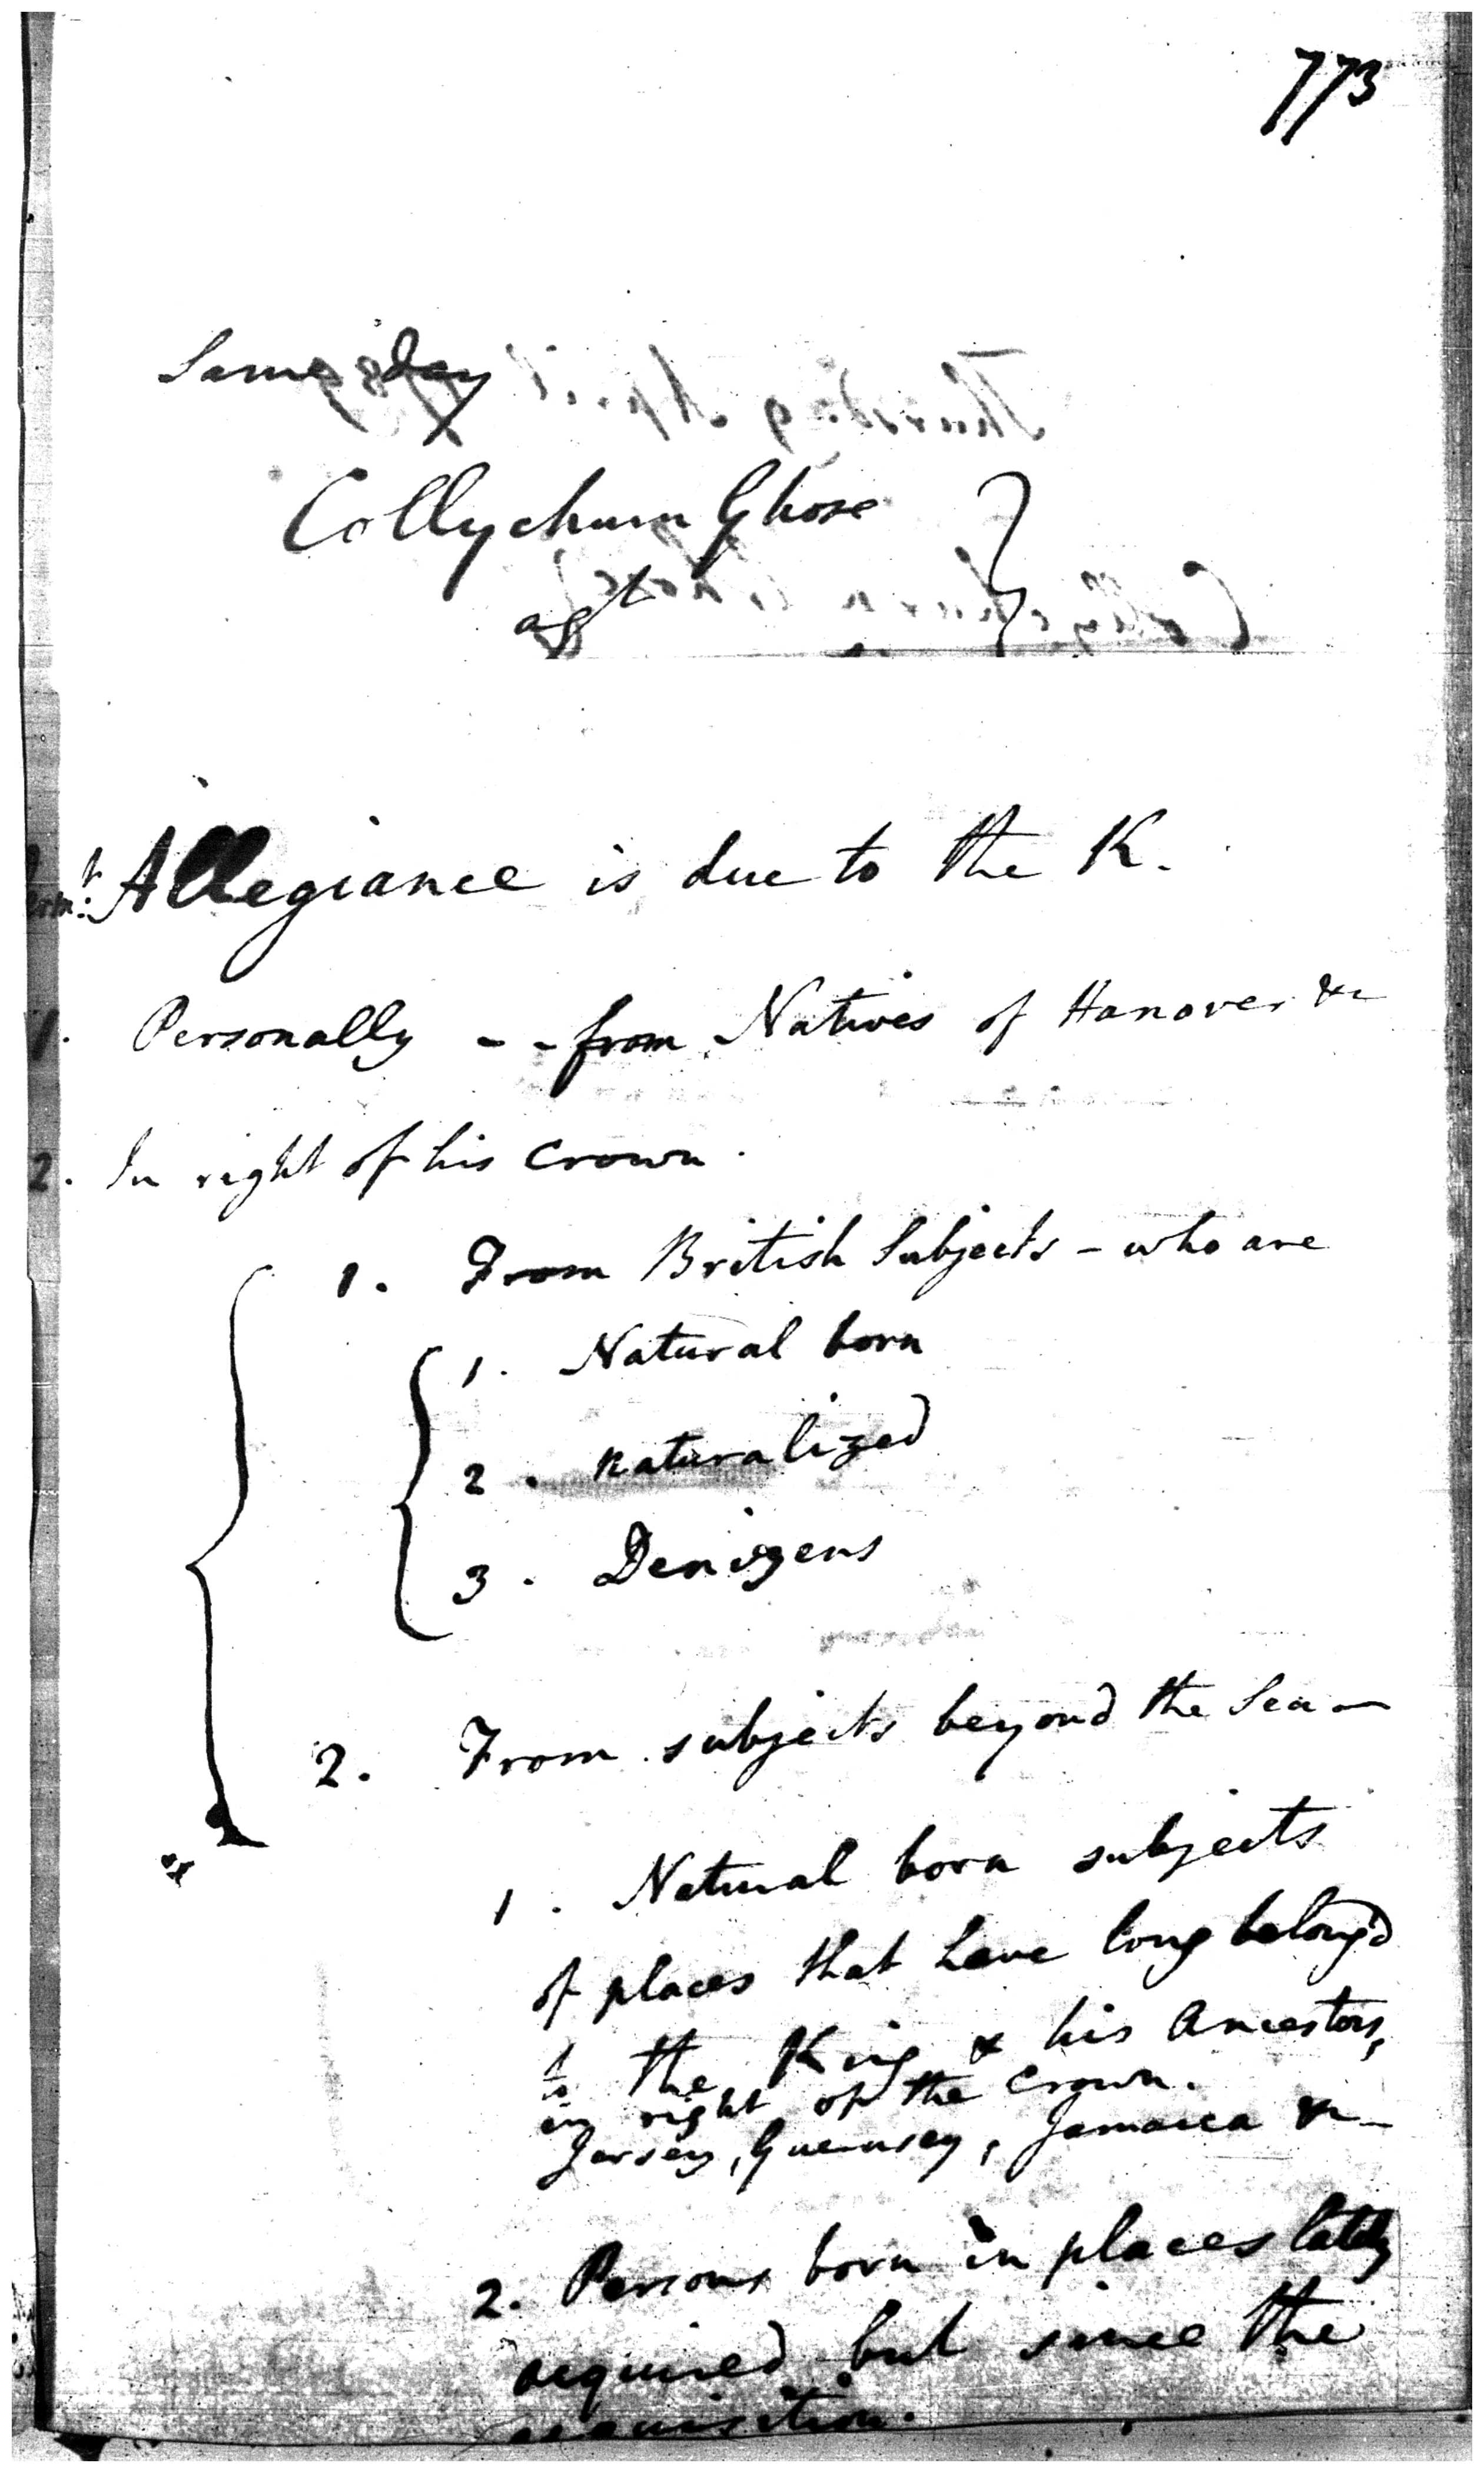 773
Same day
Collychurn Ghose
agt
Allegiance is due to the K.
1. Personally - - from Natives of Hanover &c
2. In right of his Crown.
1. From British Subjects - who are
1. Natural born
2. Naturalized
3. Denizens
2. From subjects beyond the Sea -
1. Natural born subjects
of places that have long belong'd
to the King & his Ancestors,
in right of the Crown.
Jersey, Guernsey, Jamaica &c -
2. Persons born in places lately
acquired but since the
acquisition.